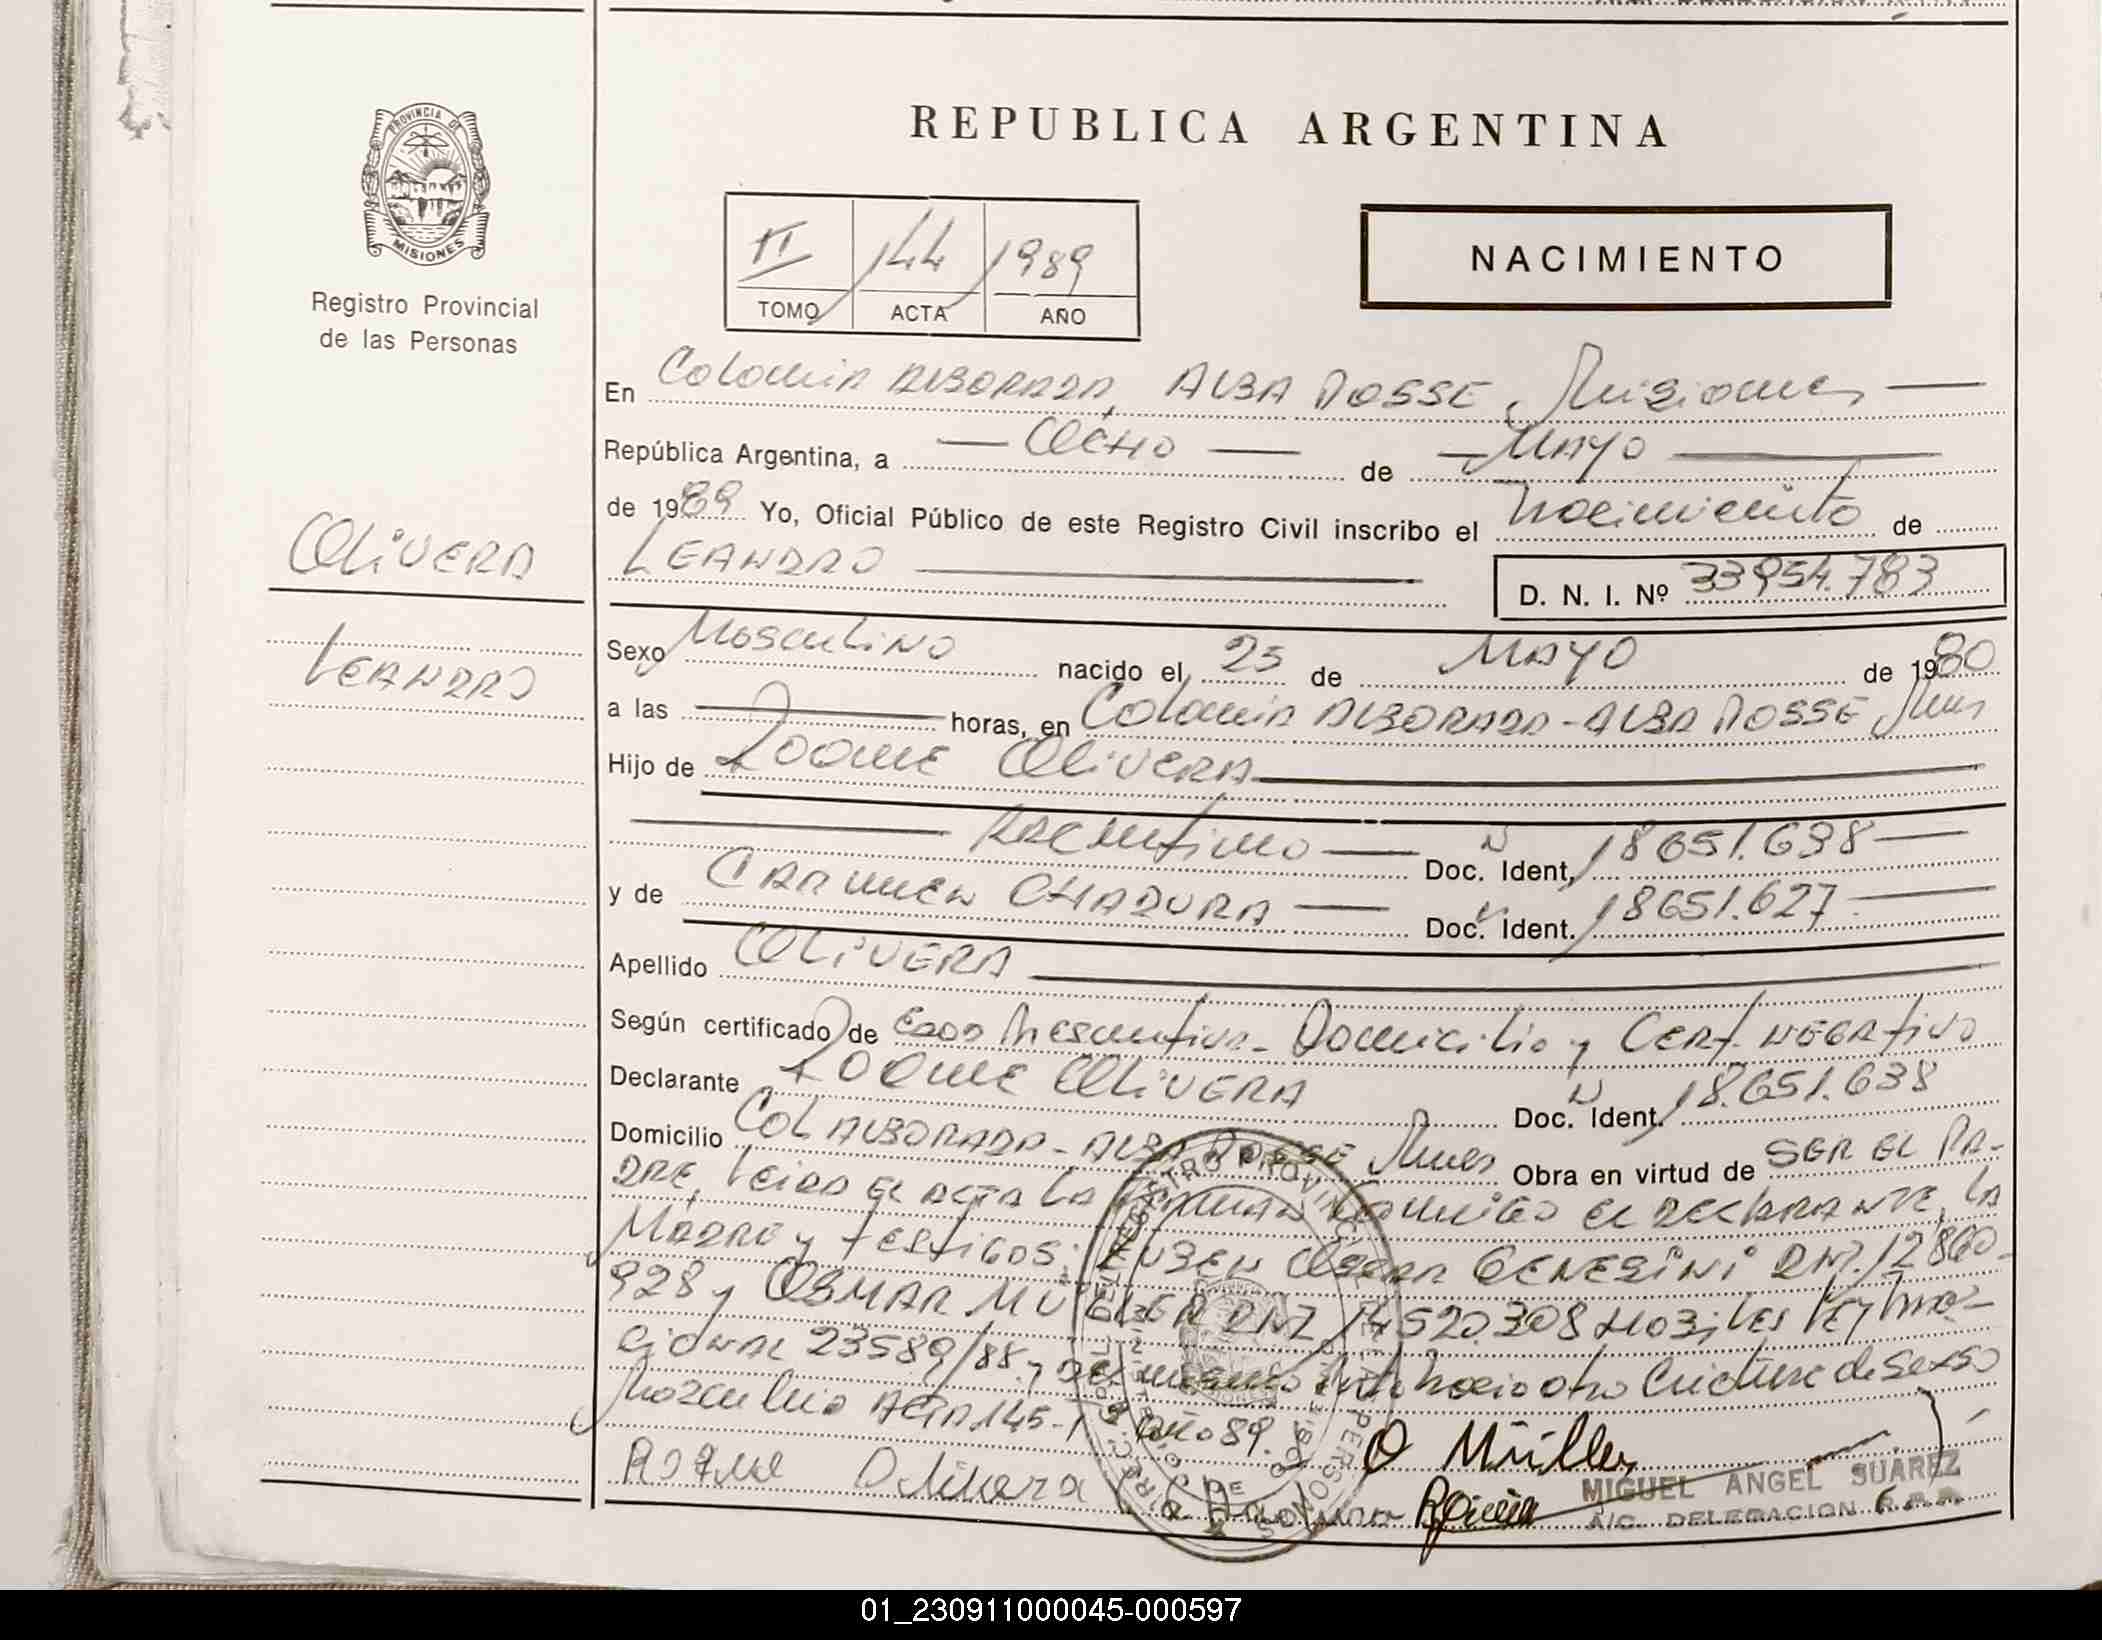 REPUBLICA ARGENTINA
PROVINCIA DE
MISIONES
Registro Provincial
de las Personas
II 144 1989
TOMO ACTA AÑO
NACIMIENTO
En Colonia ALBORADA, ALBA POSSE, Misiones
República Argentina, a OCHO de MAYO
de 1989 Yo, Oficial Público de este Registro Civil inscribo el nacimiento de
OLIVERA
LEANDRO
D. N. I. Nº 33954.783
LEANDRO
Sexo Masculino nacido el 25 de MAYO de 1980
a las horas, en Colonia ALBORADA - ALBA POSSE Mnes
Hijo de ROQUE OLIVERA
Argentino Doc. Ident. 18651.638
y de CARMEN CHADURA Doc. Ident. 18651.627
Apellido OLIVERA
Según certificado de Edad Presuntiva - Domicilio y CERT. NEGATIVO
Declarante ROQUE OLIVERA Doc. Ident. 18.651.638
Domicilio COL ALBORADA - ALBA POSSE Mnes Obra en virtud de SER EL PA-
DRE, Leida el ACTA LA firman conmigo el DECLARANTE, LA
MADRE y TESTIGOS; RUBEN OSCAR GENESINI DNI. 12860-
928 y OSMAR MULLER DNI 14520.308 Ley Na-
cional 23589/88 y del mismo nacio otro de sexo
Masculino ACTA 145- Año 89.
Roque Olivera O Müller
MIGUEL ANGEL SUAREZ
A/C. DELEGACION R.P.P.
01_230911000045-000597